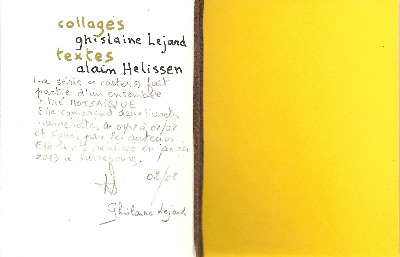 collages
ghislaine Lejard
textes
alain Helissen
La série fait
partie d'un ensemble
titré MOTSAÏQUE
Elle comprend
numérotés de 01/08 à 08/08
et signés par les auteurs.
Elle a été réalisée en janvier
2013 à Sarrebourg.
02/08
Ghislaine Lejard